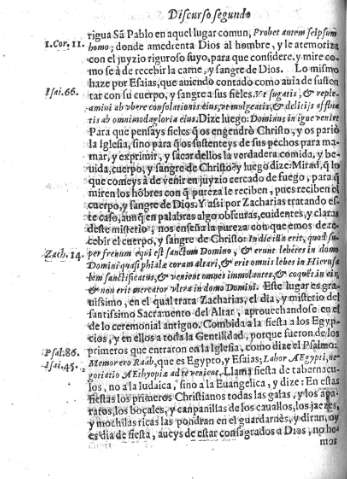 Discurso segundo
rigua Sã Pablo en aquel lugar comun, Probet autem seipsum
1. Cor. 11. homo; donde amedrenta Dios al hombre, y le atemoriza
con el juyzio riguroso suyo, para que considere, y mire co
mo se à de recebir la carne, y sangre de Dios. Lo mismo
haze por Esaias, que auiendo contado como auia de susten
Isai. 66. tar con su cuerpo, y sangre a sus fieles. Vt sugatis, & reple-
amini ab vbere consolationis eius, vt mulgeatis, & delitijs afflua
tis ab omnimoda gloria eius. Dize luego: Dominus in igne veniet
Para que penseys fieles q̃ os engendrò Christo, y os pariò
la Iglesia, sino para q̃ os sustenteys de sus pechos para ma-
mar, y exprimir, y sacar dellos la verdadera comida, y be-
uida, cuerpo, y sangre de Christo y luego dize: Mirad, q̃ lo
que comeys à de venir en juyzio cercado de fuego, para q̃
miren los hõbres con q̃ pureza le reciben, pues reciben el
cuerpo, y sangre de Dios. Y assi por Zacharias tratando es-
te caso, aunq̃ en palabras algo obscuras, euidentes, y claras
deste misterio, nos enseña la pureza con que emos de re-
cebir el cuerpo, y sangre de Christo: In die illa erit, quod su-
Zach. 14. per frenum equi est sanctum Domino, & erunt lebetes in domo
Domini quasi phialæ coram altari, & erit omnis lebes in Hierusa
lem sanctificatus, & venient omnes immolantes, & coquẽt in eis,
& non erit mercator vltra in domo Domini. Este lugar es gra-
uissimo, en el qual trata Zacharias, el dia, y misterio del
santissimo Sacramento del Altar, aprouechandose en el
de lo ceremonial antiguo. Combida a la fiesta a los Egyp-
cios, y en ellos a toda la Gentilidad, porque fueron de los
Psal. 86. primeros que entraron en la Iglesia, como dize el Psalmo:
Isai. 45. Memorero Raàb, que es Egypto, y Esaias; Labor AEgypti, ne-
gotiatio AEthyopia ad te venient, Llama fiesta de tabernacu-
los, no a la Iudaica, sino a la Euangelica, y dize: En estas
fiestas los primeros Christianos todas las galas, y los apa-
ratos, los boçales, y campanillas de los cauallos, los jaezes,
y mochilas ricas las pondran en el guardarnès, y diran, oy
es dia de fiesta, aueys de estar consagrados a Dios, no he
mos